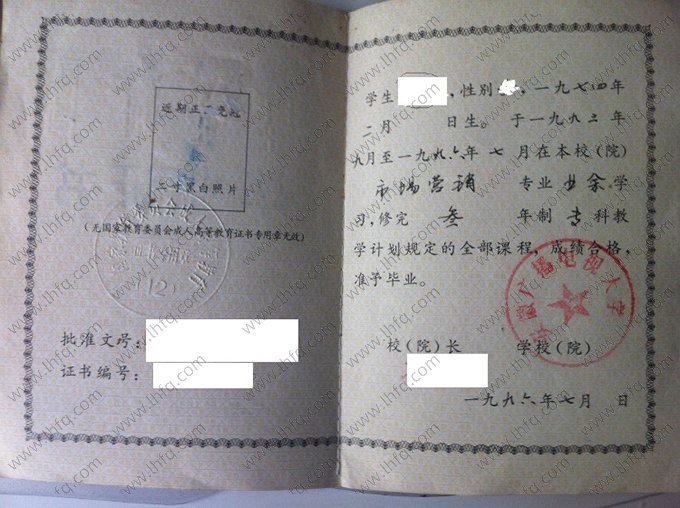 近期正面免冠
二寸黑白照片
(无国家教育委员会成人高等教育证书专用章无效)
(12)
批准文号:
证书编号:
学生 , 性别 , 一九七四年
二月 日生。于一九九三年
九月至一九九六年七月在本校(院)
市场营销 专业业余学
习, 修完 叁 年制 专 科教
学计划规定的全部课程, 成绩合格,
准予毕业。
安徽广播电视大学
校(院)长 学校(院)
一九九六年七月 日
www.lhfq.com